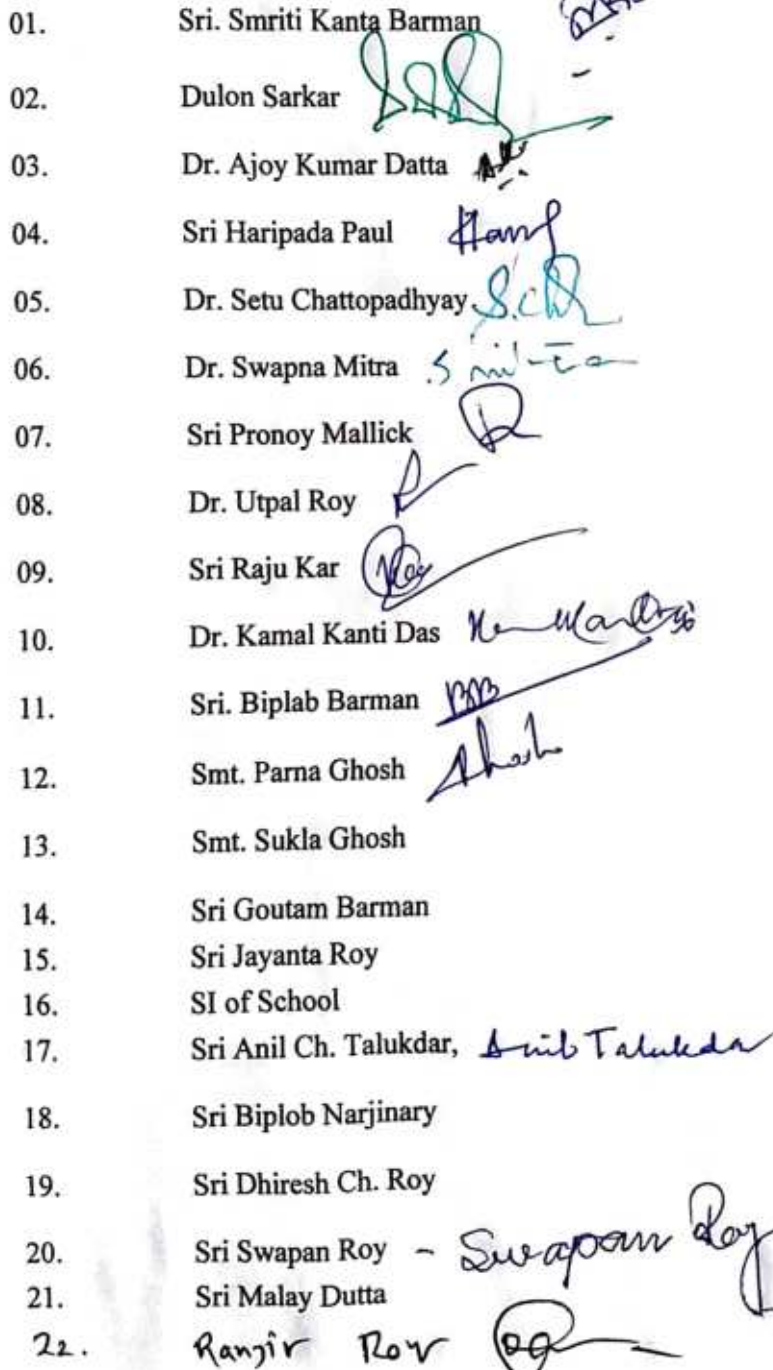 01. Sri. Smriti Kanta Barman
02. Dulon Sarkar
03. Dr. Ajoy Kumar Datta
04. Sri Haripada Paul
05. Dr. Setu Chattopadhyay
06. Dr. Swapna Mitra
07. Sri Pronoy Mallick
08. Dr. Utpal Roy
09. Sri Raju Kar
10. Dr. Kamal Kanti Das
11. Sri. Biplab Barman BB
12. Smt. Parna Ghosh
13. Smt. Sukla Ghosh
14. Sri Goutam Barman
15. Sri Jayanta Roy
16. SI of School
17. Sri Anil Ch. Talukdar, Anil Talukdar
18. Sri Biplob Narjinary
19. Sri Dhiresh Ch. Roy
20. Sri Swapan Roy - Swapan Roy
21. Sri Malay Dutta
22. Ranjit Roy